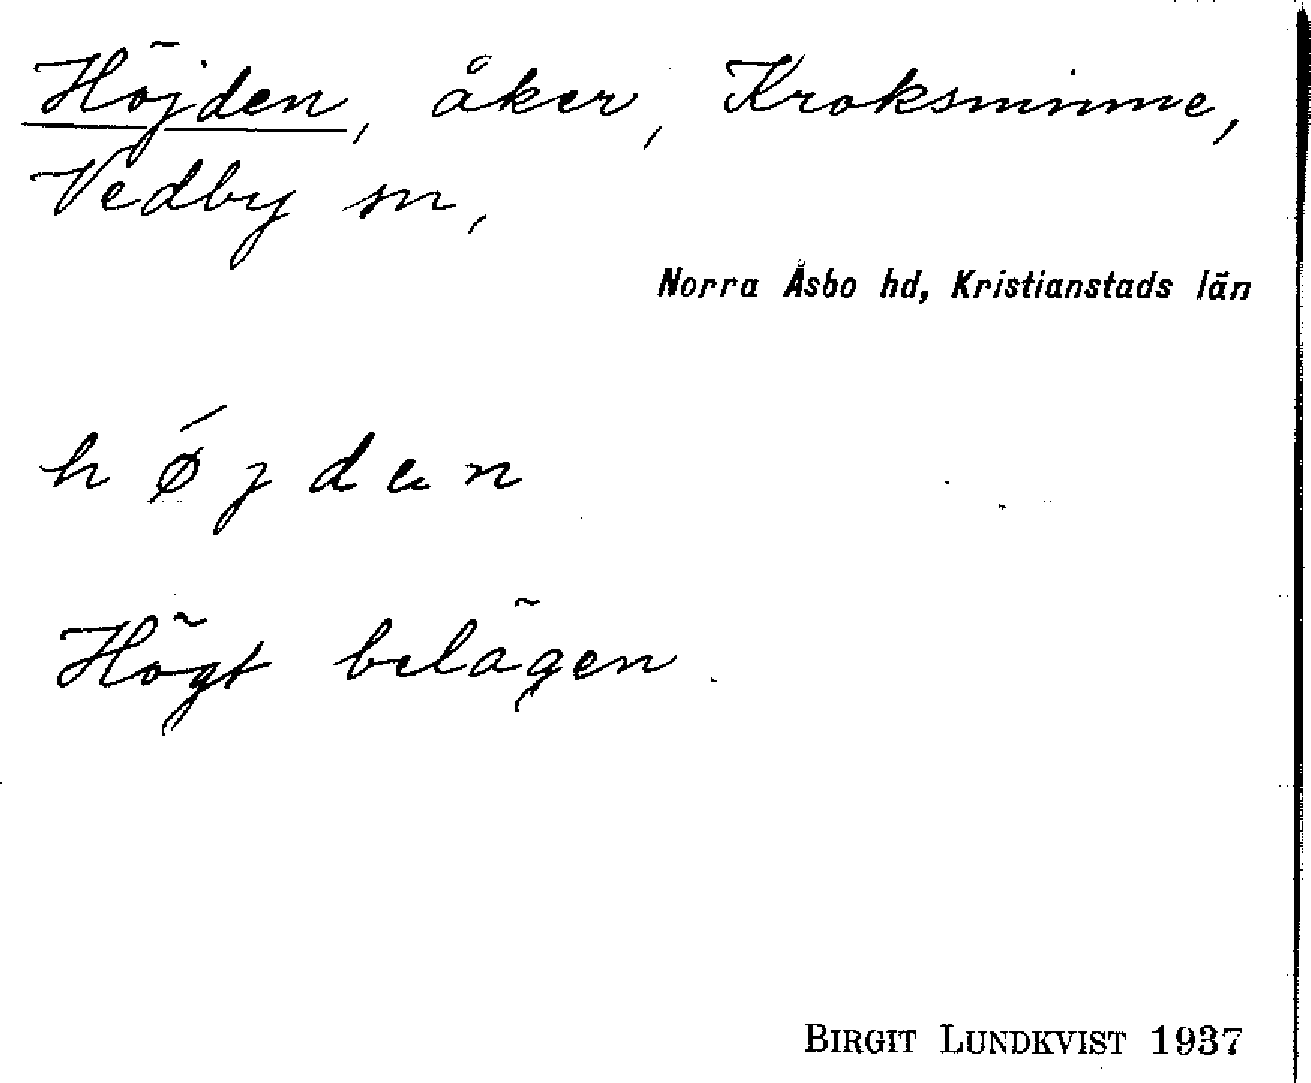 Höjden, åker, Kroksminne,
Vedby sn,
Norra Åsbo hd, Kristianstads län
h ǿ j d e n
Högt belägen.
BIRGIT LUNDKVIST 1937